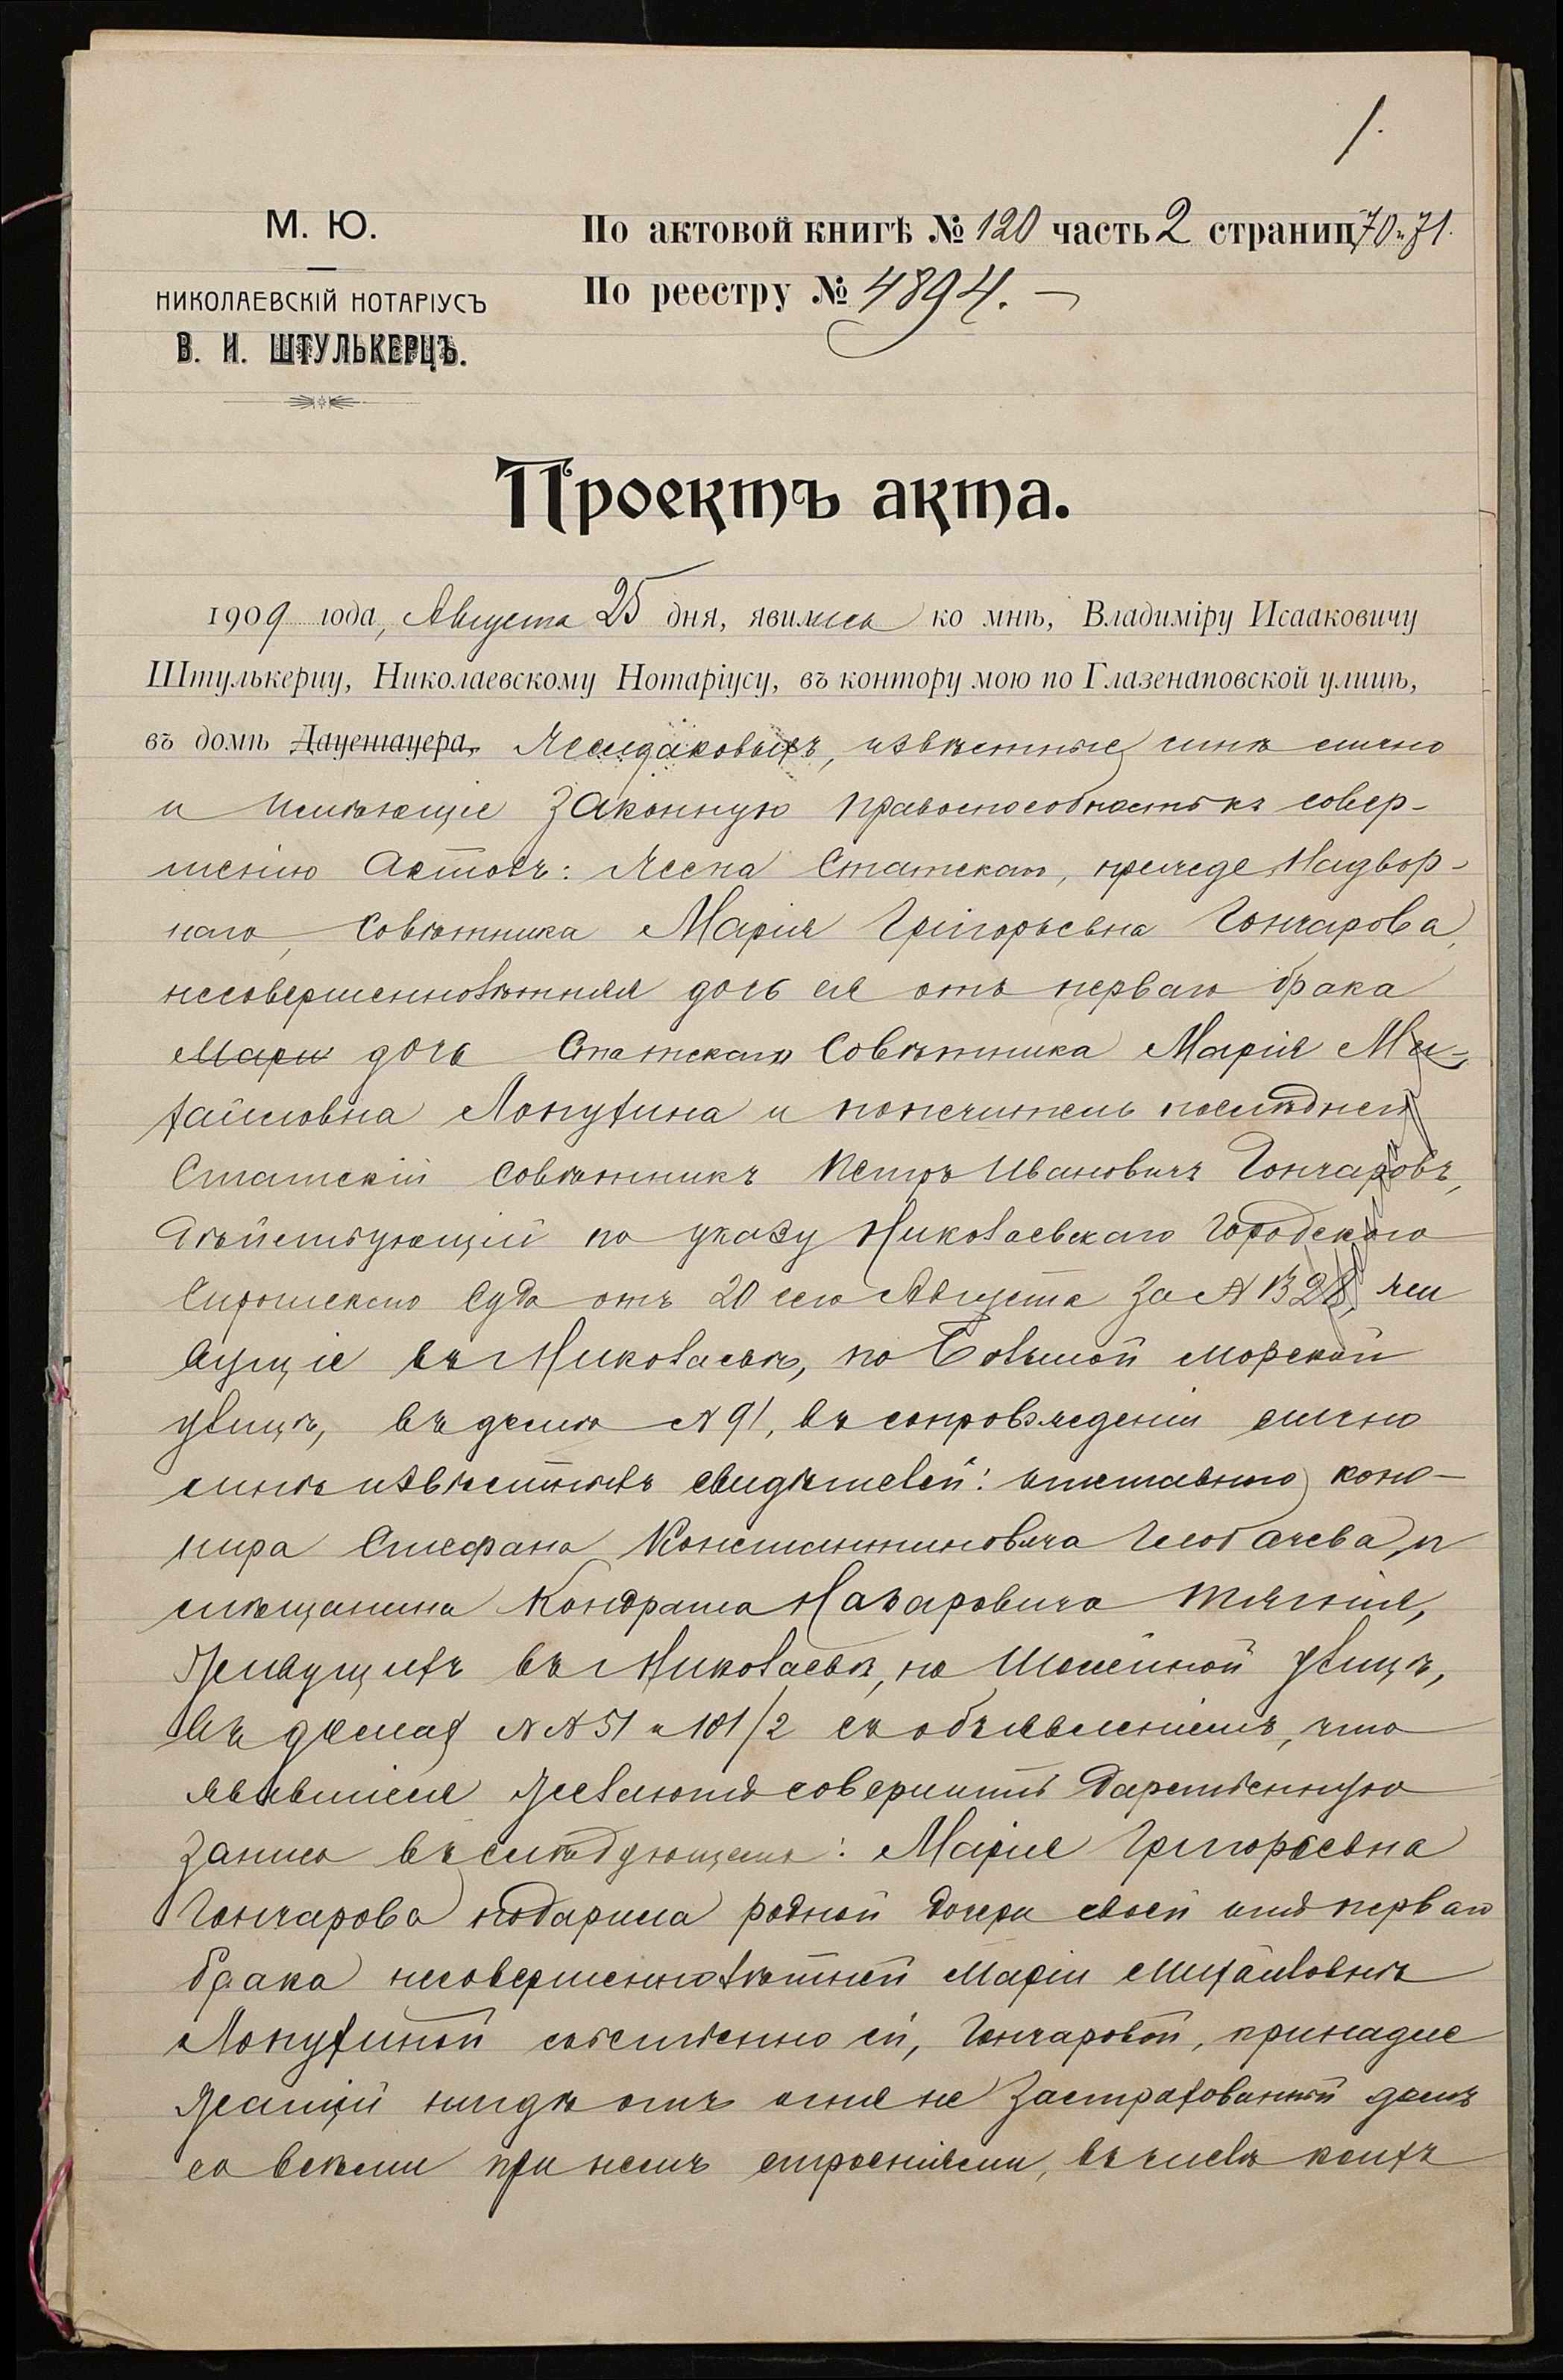 1.
М. Ю.
По актовой книгѣ № 120 часть 2 страниц 70 и 71.
НИКОЛАЕВСКІЙ НОТАРІУСЪ
По реестру № 4894.
В. И. ШТУЛЬКЕРЦЪ.
Проектъ акта.
1909 года, Августа 25 дня, явились ко мнѣ, Владиміру Исааковичу
Штулькерцу, Николаевскому Нотаріусу, въ контору мою по Глазенаповской улицѣ,
въ домѣ Даушауера, извѣстные мнѣ лично
и имѣющіе законную правоспособность къ совер-
шенію актовъ: жена Статскаго, прежде Надвор-
наго Совѣтника Марія Григорьевна Гончарова,
несовершеннолѣтняя дочь ея отъ перваго брака
Мари дочь Статскаго Совѣтника Марія Ми-
хайловна Лопухина и попечитель последней
Статскій Совѣтникъ Петръ Ивановичъ Гончаровъ,
дѣйствующій по указу Николаевскаго Городского
Сиротскаго Суда отъ 20 сего Августа за № 1328, жи
вущіе въ Николаевѣ, по Большой Морской
улицѣ, въ домѣ № 91, въ сопровожденіи лично
мнѣ извѣстныхъ свидѣтелей: отставного коно-
нира Стефана Константиновича и
мѣщанина Кондрата Назаровича
живущихъ въ Николаевѣ, по улицѣ,
въ домах №№ 51 и 101/2 съ объявленіемъ, что
явившіеся желаютъ совершить дарственную
запись въ слѣдующемъ: Марія Григорьевна
Гончарова подарила родной дочери своей отъ перваго
брака несовершеннолѣтней Маріи Михайловнѣ
Лопухиной собственно ей, Гончаровой, принадле
жащій нигдѣ отъ огня не застрахованный домъ
со всѣми при немъ строеніями, въ числѣ коихъ